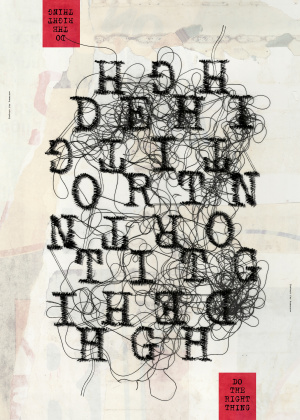 DO
THE
RIGHT
THING
H G H
D E H I
G T I T
O R T N
N T R O
T I T G
I H E D
H G H
DO
THE
RIGHT
THING